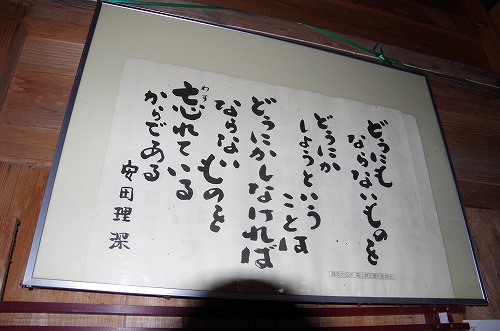 どうにも
ならないものを
どうにか
しようという
ことは
どうにかしなければ
ならないものを
わす
忘れている
からである
安田理深